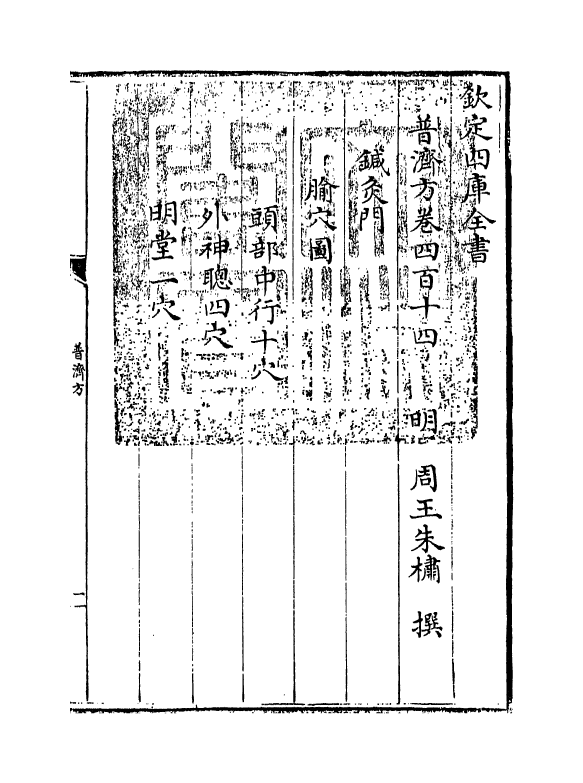 欽定四庫全書
普濟方卷四百十四 明 周王朱橚 撰
鍼灸門
腧穴圖
頭部中行十穴
外神聰四穴
明堂一穴
普濟方